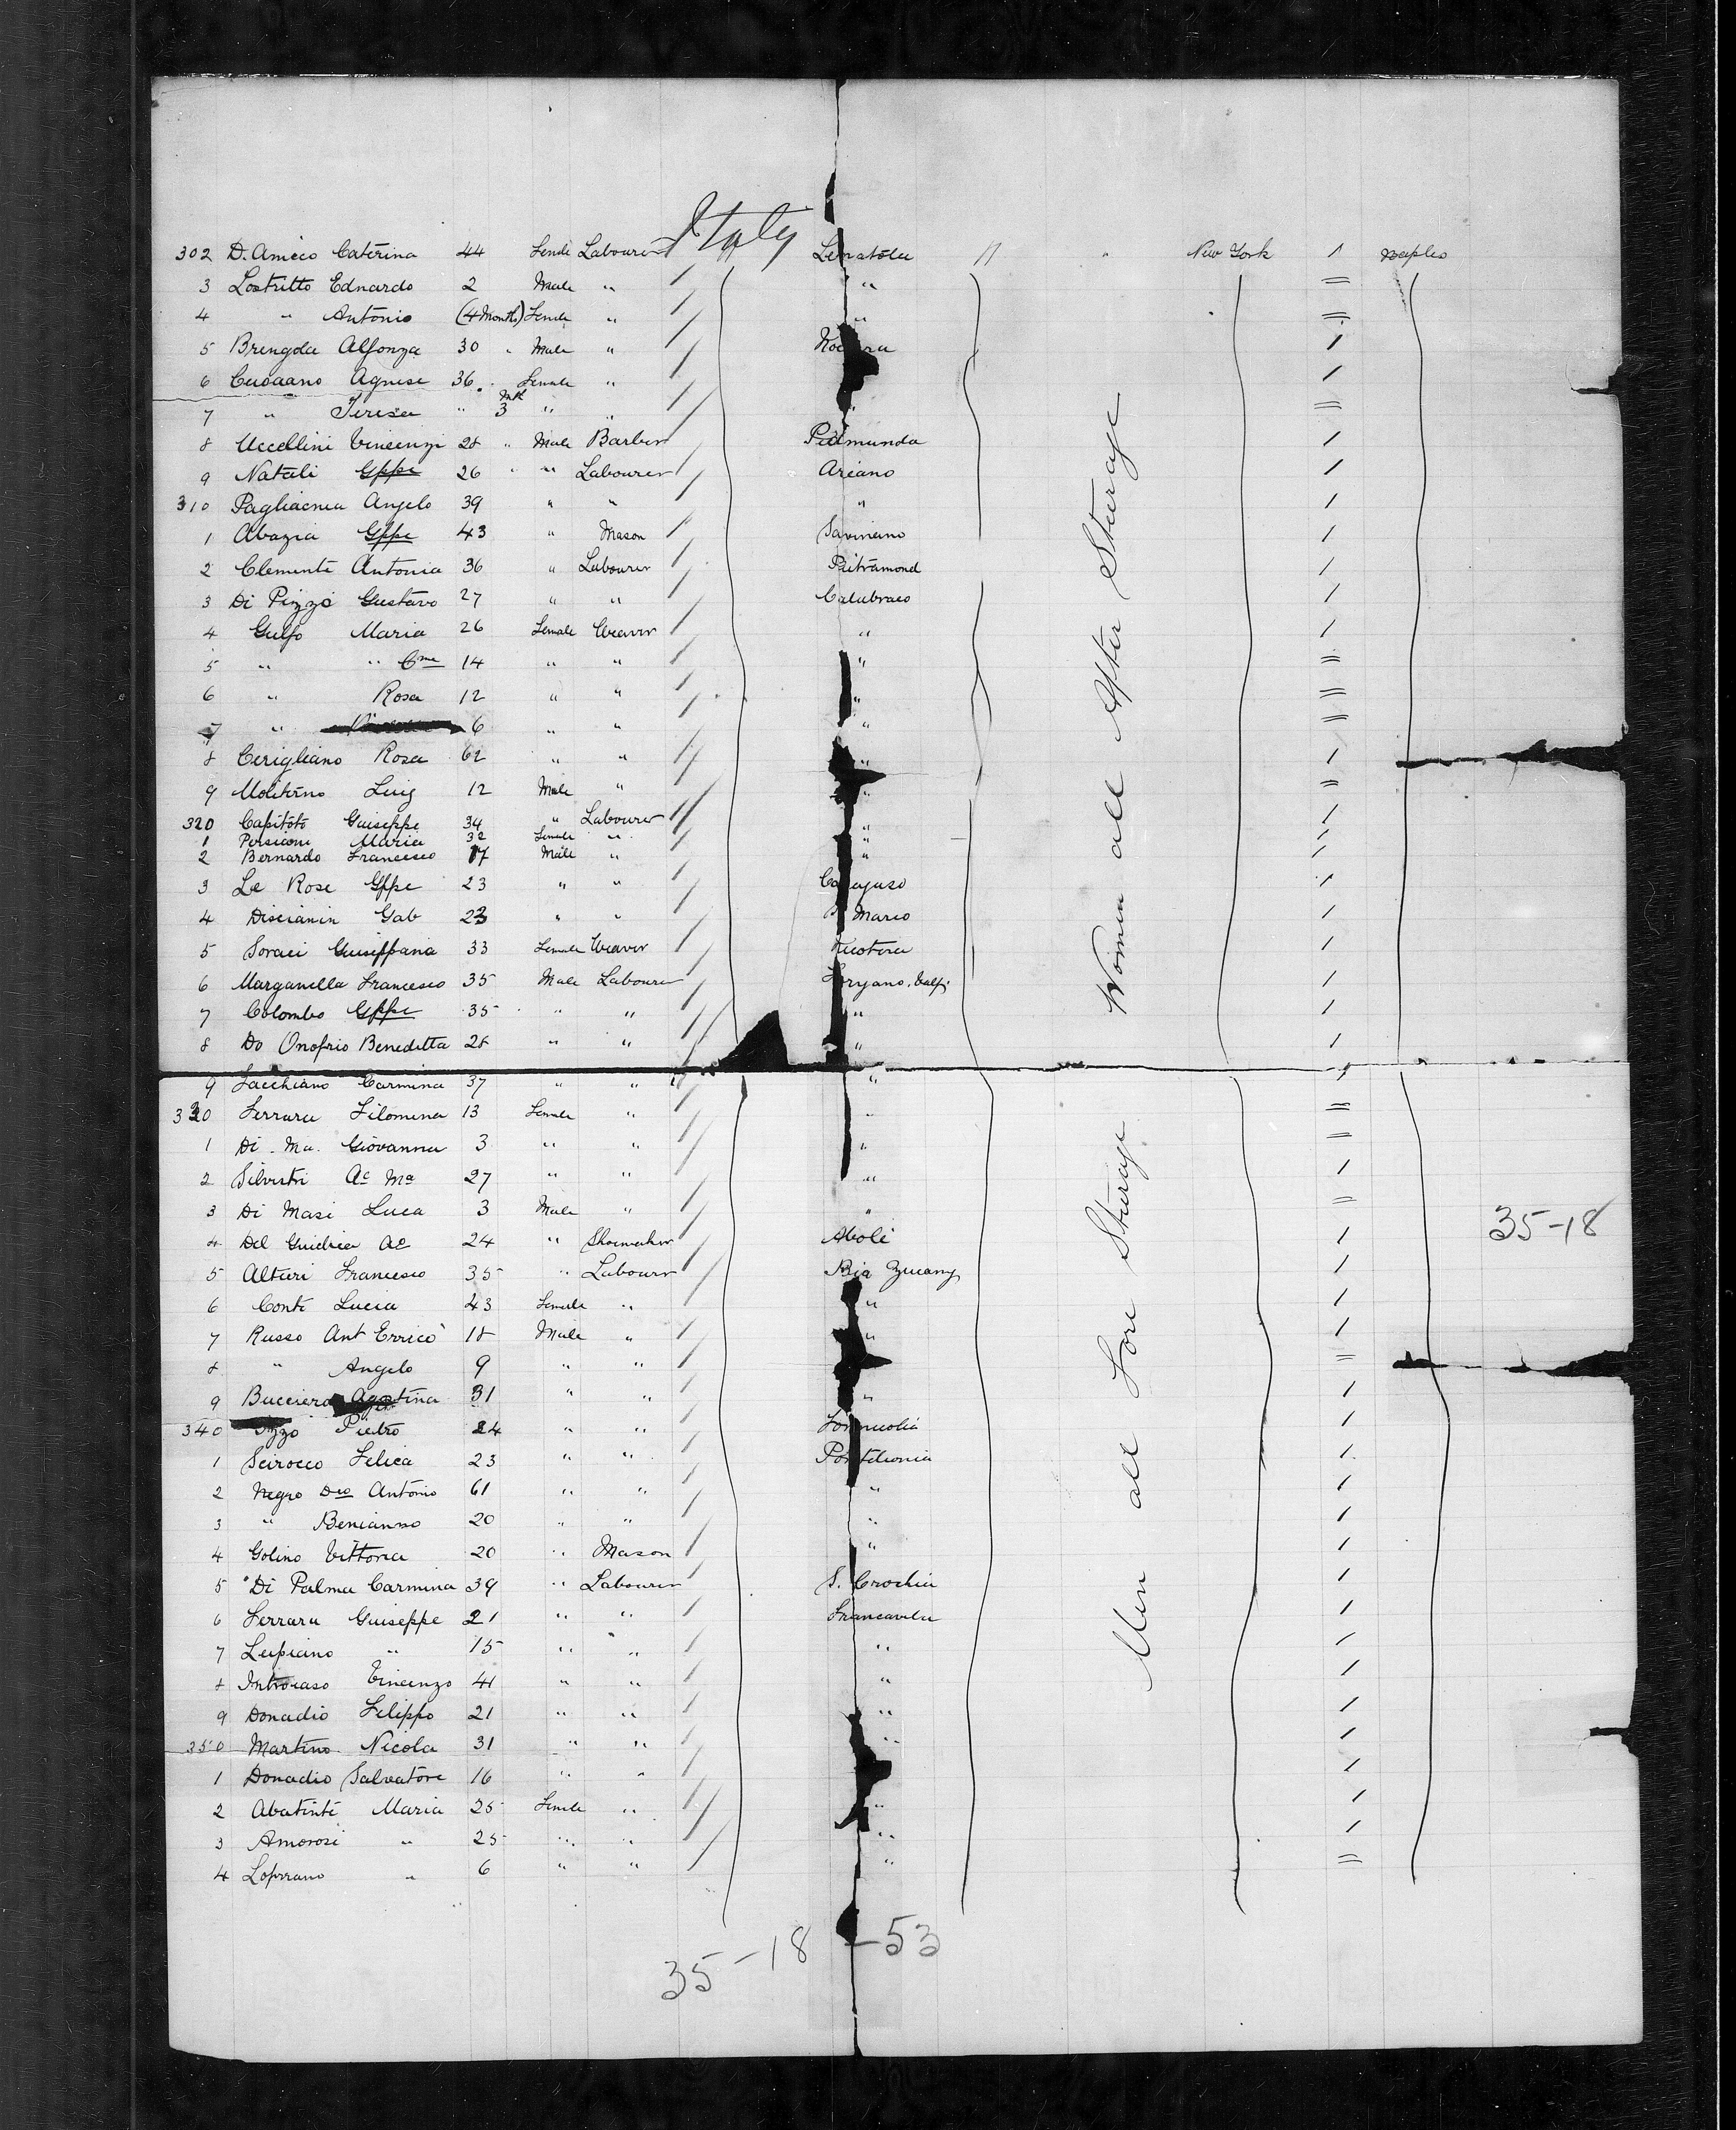 Italy
302 D. Amico Caterina 44 Female Labourer Lenatola " " New York 1 Naples
3 Lostritto Ednardo 2 Male " " =
4 " Antonio (4 Months) Female " " =
5 Brengola Alfonza 30 " Male " 1
6 Agnese 36 " Female " 1
7 " Teresa " 3 Mth " " " =
8 Uccellini Vincenzi 28 " Male Barber 1
9 Natali Gppe 26 " " Labourer Ariano 1
310 Pagliacnea Angelo 39 " " " 1
1 Abazia Gppe 43 " Mason Savinano 1
2 Clemente Antonia 36 " Labourer Pietramond 1
3 Di Pizzo Gustavo 27 " " Calubraco 1
4 Gulfo Maria 26 Female Weaver " 1
5 " " Cme 14 " " " =
6 " Rosa 12 " " " =
7 " 6 " " " =
8 Cirigliano Rosa 62 " " " 1
9 Moliterno Luig 12 Male " " =
320 Capitoto Guiseppe 34 " Labourer " 1
1 Persiconi Maria 32 Female " " 1
2 Bernardo Francesco 17 Male " " 1
3 Le Rose Gppe 23 " " 1
4 Discianin Gab 23 " " Marco 1
5 Soraci Guiseppana 33 Female Weaver 1
6 Marganella Francesco 35 Male Labourer 1
7 Colombo Gppe 35 " " " 1
8 Do Onofrio Beneditta 28 " " " 1
9 Sacchiano Carmina 37 " " " 1
330 Ferrara Filomena 13 Female " " =
1 Di Ma. Giovanna 3 " " " =
2 Silvestri Ac Ma 27 " " " 1
3 Di Masi Luca 3 Male " " =
4 Del Guidice Ac 24 " Shoemaker Aboli 1
5 Alturi Francesco 35 " Labourer 1
6 Conte Lucia 43 Female " " 1
7 Russo Ant Errico 18 Male " " 1
8 " Angelo 9 " " " =
9 Agostina 31 " " " 1
340 Pietro 24 " " 1
1 Scirocco Felica 23 " " 1
2 Negro Dco Antonio 61 " " " 1
3 " Benianno 20 " " " 1
4 Golino Vittoria 20 " Mason " 1
5 Di Palma Carmina 39 " Labourer S. Crochia 1
6 Ferrara Guiseppe 21 " " Francavila 1
7 Lupiano " 15 " " " 1
8 Introcaso Vincenzo 41 " " " 1
9 Donadio Filippo 21 " " " 1
350 Martino Nicola 31 " " " 1
1 Donadio Salvatore 16 " " 1
2 Abatinti Maria 25 Female " " 1
3 Amorosi " 25 " " " 1
4 Loprrano " 6 " " " =
Women all After Sturage
Men all Fore Sturage
35-18
35-18 -53